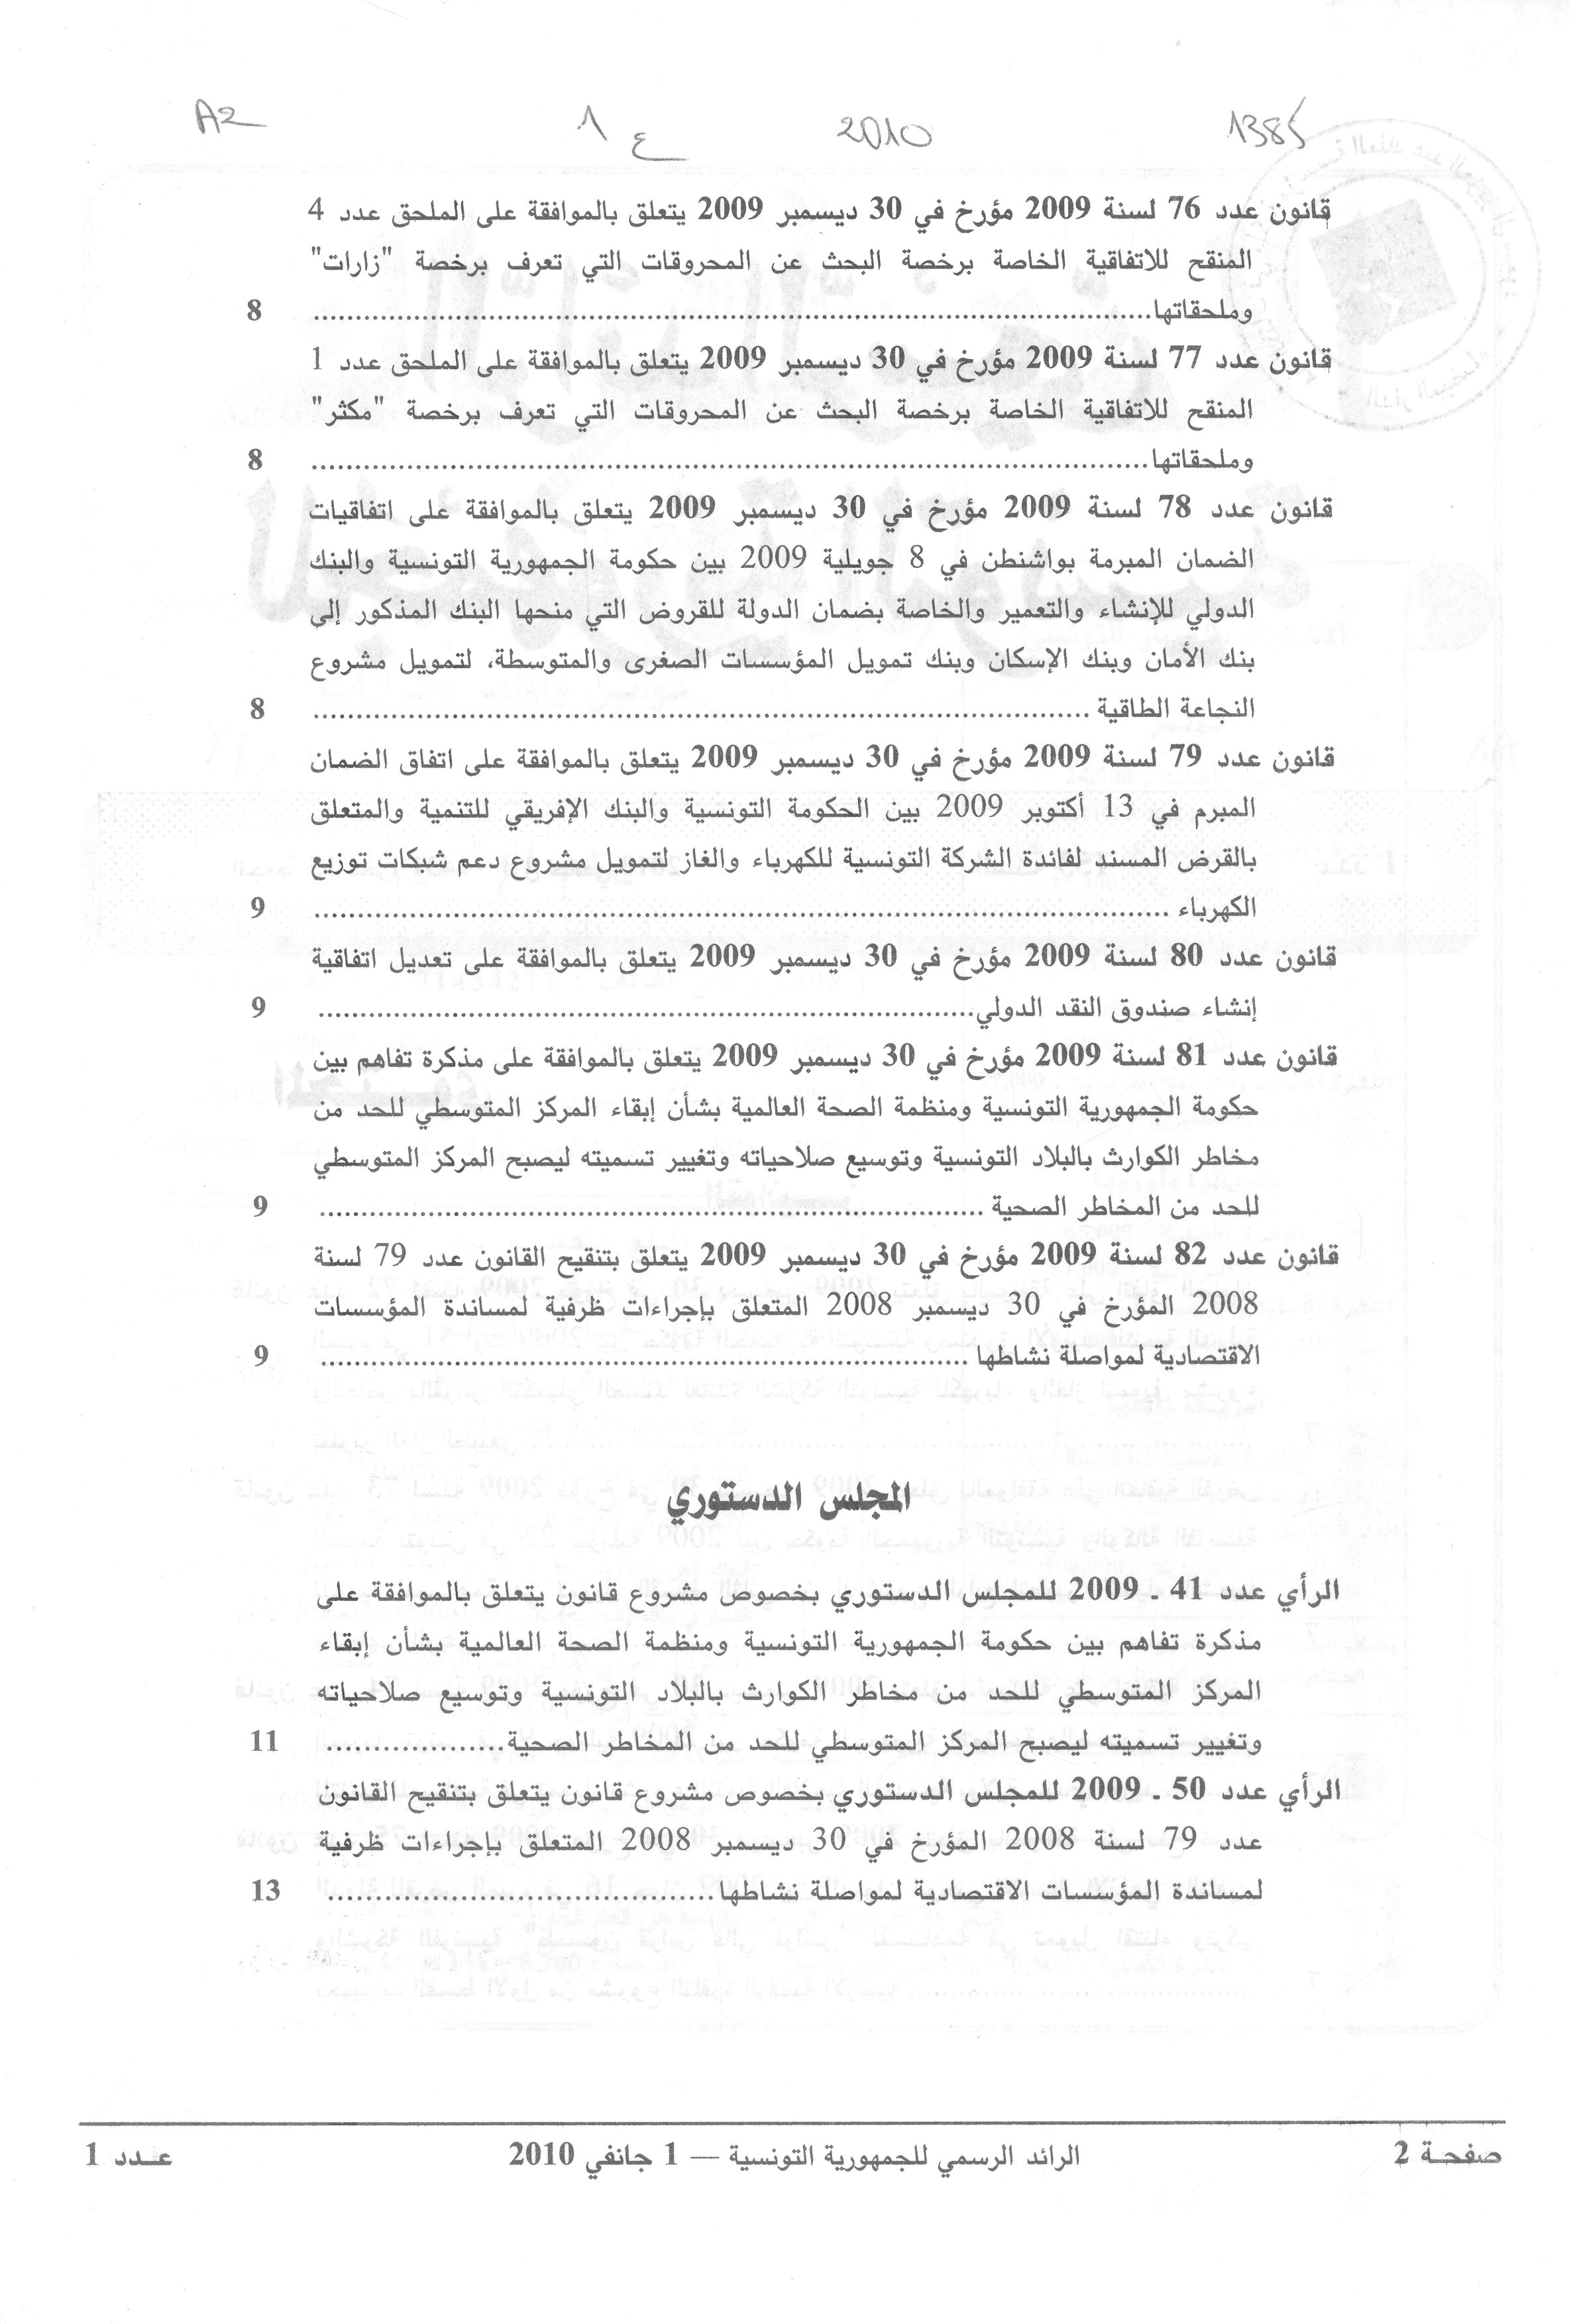 1385 2010 ع 1 A2
قانون عدد 76 لسنة 2009 مؤرخ في 30 ديسمبر 2009 يتعلق بالموافقة على الملحق عدد 4
المنقح للاتفاقية الخاصة برخصة البحث عن المحروقات التي تعرف برخصة "زارات"
وملحقاتها........................................................................................................ 8
قانون عدد 77 لسنة 2009 مؤرخ في 30 ديسمبر 2009 يتعلق بالموافقة على الملحق عدد 1
المنقح للاتفاقية الخاصة برخصة البحث عن المحروقات التي تعرف برخصة "مكثر"
وملحقاتها........................................................................................................ 8
قانون عدد 78 لسنة 2009 مؤرخ في 30 ديسمبر 2009 يتعلق بالموافقة على اتفاقيات
الضمان المبرمة بواشنطن في 8 جويلية 2009 بين حكومة الجمهورية التونسية والبنك
الدولي للإنشاء والتعمير والخاصة بضمان الدولة للقروض التي منحها البنك المذكور إلى
بنك الأمان وبنك الإسكان وبنك تمويل المؤسسات الصغرى والمتوسطة، لتمويل مشروع
النجاعة الطاقية ................................................................................................ 8
قانون عدد 79 لسنة 2009 مؤرخ في 30 ديسمبر 2009 يتعلق بالموافقة على اتفاق الضمان
المبرم في 13 أكتوبر 2009 بين الحكومة التونسية والبنك الإفريقي للتنمية والمتعلق
بالقرض المسند لفائدة الشركة التونسية للكهرباء والغاز لتمويل مشروع دعم شبكات توزيع
الكهرباء .......................................................................................................... 9
قانون عدد 80 لسنة 2009 مؤرخ في 30 ديسمبر 2009 يتعلق بالموافقة على تعديل اتفاقية
إنشاء صندوق النقد الدولي................................................................................. 9
قانون عدد 81 لسنة 2009 مؤرخ في 30 ديسمبر 2009 يتعلق بالموافقة على مذكرة تفاهم بين
حكومة الجمهورية التونسية ومنظمة الصحة العالمية بشأن إبقاء المركز المتوسطي للحد من
مخاطر الكوارث بالبلاد التونسية وتوسيع صلاحياته وتغيير تسميته ليصبح المركز المتوسطي
للحد من المخاطر الصحية .................................................................................. 9
قانون عدد 82 لسنة 2009 مؤرخ في 30 ديسمبر 2009 يتعلق بتنقيح القانون عدد 79 لسنة
2008 المؤرخ في 30 ديسمبر 2008 المتعلق بإجراءات ظرفية لمساندة المؤسسات
الاقتصادية لمواصلة نشاطها ................................................................................ 9
المجلس الدستوري
الرأي عدد 41 ـ 2009 للمجلس الدستوري بخصوص مشروع قانون يتعلق بالموافقة على
مذكرة تفاهم بين حكومة الجمهورية التونسية ومنظمة الصحة العالمية بشأن إبقاء
المركز المتوسطي للحد من مخاطر الكوارث بالبلاد التونسية وتوسيع صلاحياته
وتغيير تسميته ليصبح المركز المتوسطي للحد من المخاطر الصحية..................... 11
الرأي عدد 50 ـ 2009 للمجلس الدستوري بخصوص مشروع قانون يتعلق بتنقيح القانون
عدد 79 لسنة 2008 المؤرخ في 30 ديسمبر 2008 المتعلق بإجراءات ظرفية
لمساندة المؤسسات الاقتصادية لمواصلة نشاطها........................................ 13
صفحة 2 الرائد الرسمي للجمهورية التونسية — 1 جانفي 2010 عـدد 1